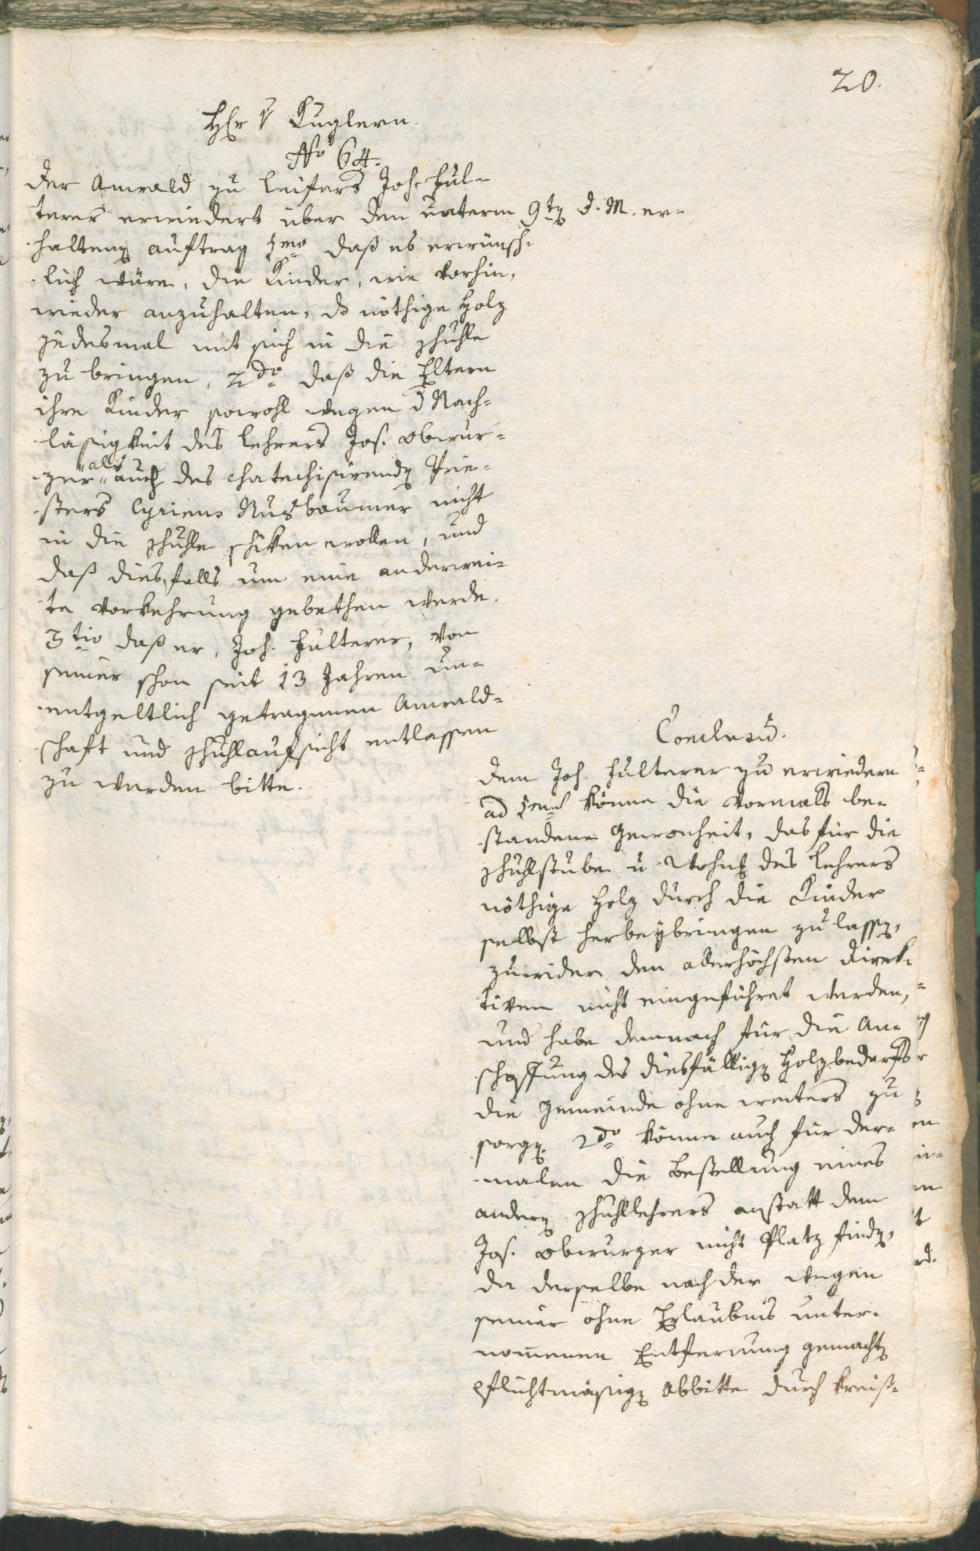 20.
Hr v Kuglern.
No 64.
Der Anwald zu Leifers Joh. Hul-
terer erwiedert über den unterm 9ten d. M. er-
haltenen auftrag 1mo daß es erwünsch-
lich wäre, die Kinder, wie vorhin,
wieder anzuhalten, ds nöthige Holz
jedesmal mit sich in die Schulle
zu bringen, 2do daß die Eltern
ihre Kinder sowohl wegen d Nach-
läßigkeit des Lehrers Jos. Obwur-
zer als auch des chatechisirenden Prie-
sters Cyriens Nusbaumer nicht
in die Schulle schiken wollen, und
daß diesfalls um eine anderwei-
te Vorkehrung gebethen werde.
3tio daß er, Joh. Hulterer, von
seiner schon seit 13 Jahren un-
entgeltlich getragenen Anwald-
schaft und Schulaufsicht entlassen
zu werden bitte.
Conclusum.
Dem Joh. Hulterer zu erwiedern
ad 1mum könne die vormals be-
standene Gewonheit, das für die
Schulstube u. Wohng des Lehrers
nöthige Holz durch die Kinder
selbst herbeybringen zu lassen,
zuwider den allerhöchsten Direk-
tiven nicht eingeführet werden,
und habe demnach für die An-
schaffung des diesfälligen Holzbedarfs
die Gemeinde ohne weiters zu
sorgen. 2do könne auch für der-
malen die Bestellung eines
andern Schullehrers anstatt dem
Jos. Obwurzer nicht Platz finden,
da derselbe nach der wegen
seiner ohne Erlaubnis unter-
nommenen Entfernung gemachten
pflichtmäßigen Abbitte durch Kreis-